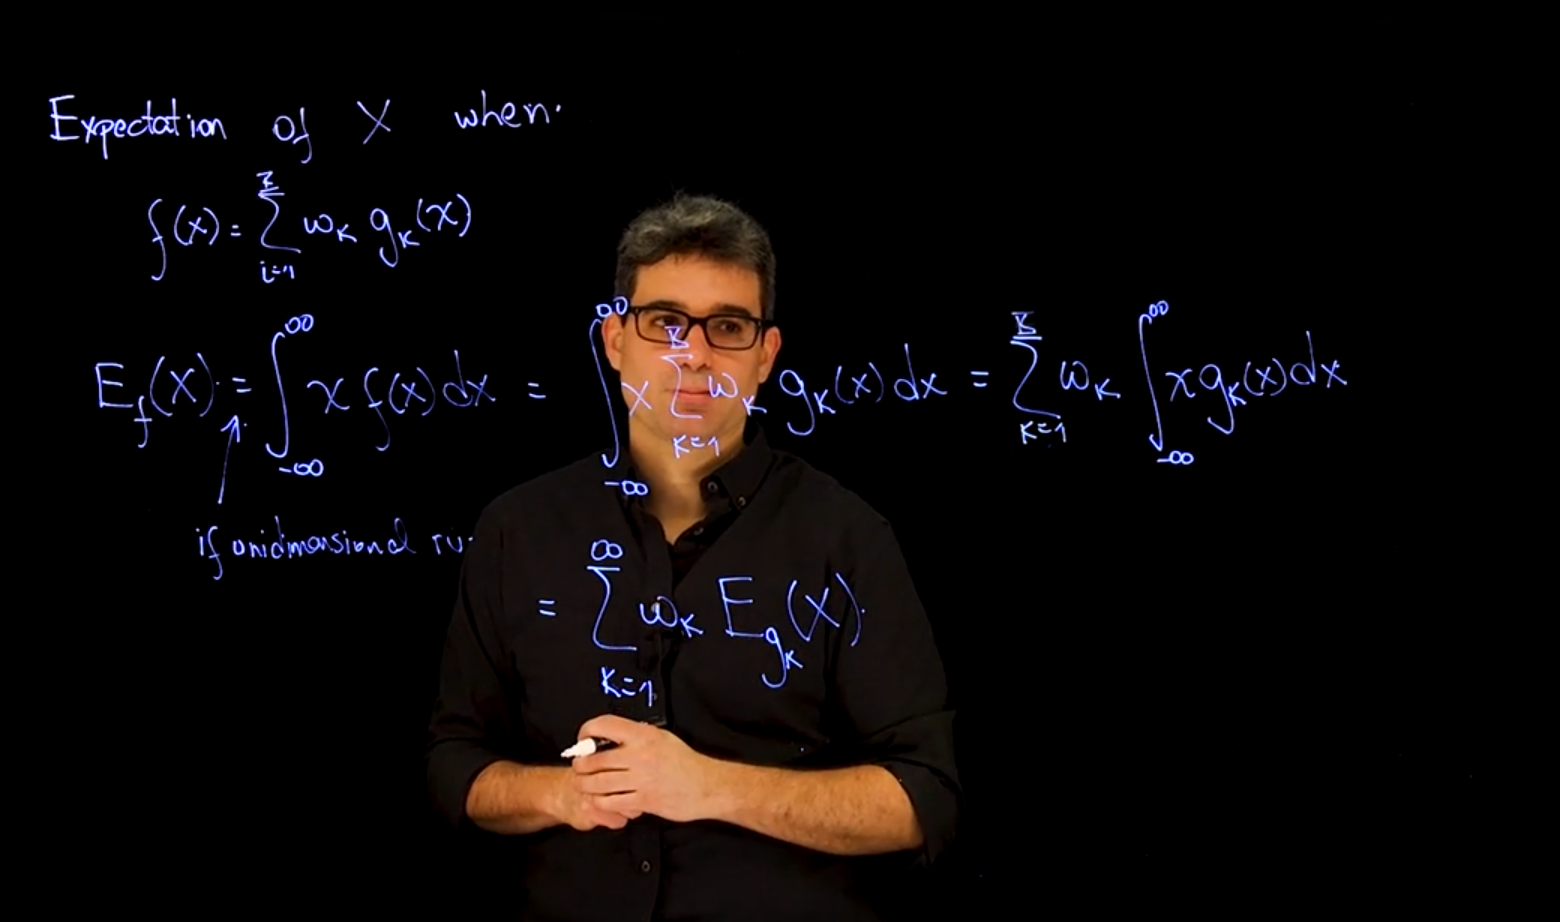 Expectation of X when.
f(x) = ∑_{i=1}^{K} ω_K g_K(x)
E_f(X) = ∫_{-∞}^{∞} x f(x) dx = ∫_{-∞}^{∞} x ∑_{K=1}^{K} ω_K g_K(x) dx = ∑_{K=1}^{K} ω_K ∫_{-∞}^{∞} x g_K(x) dx
if unidmensional
= ∑_{K=1}^{∞} ω_K E_{g_K}(X).